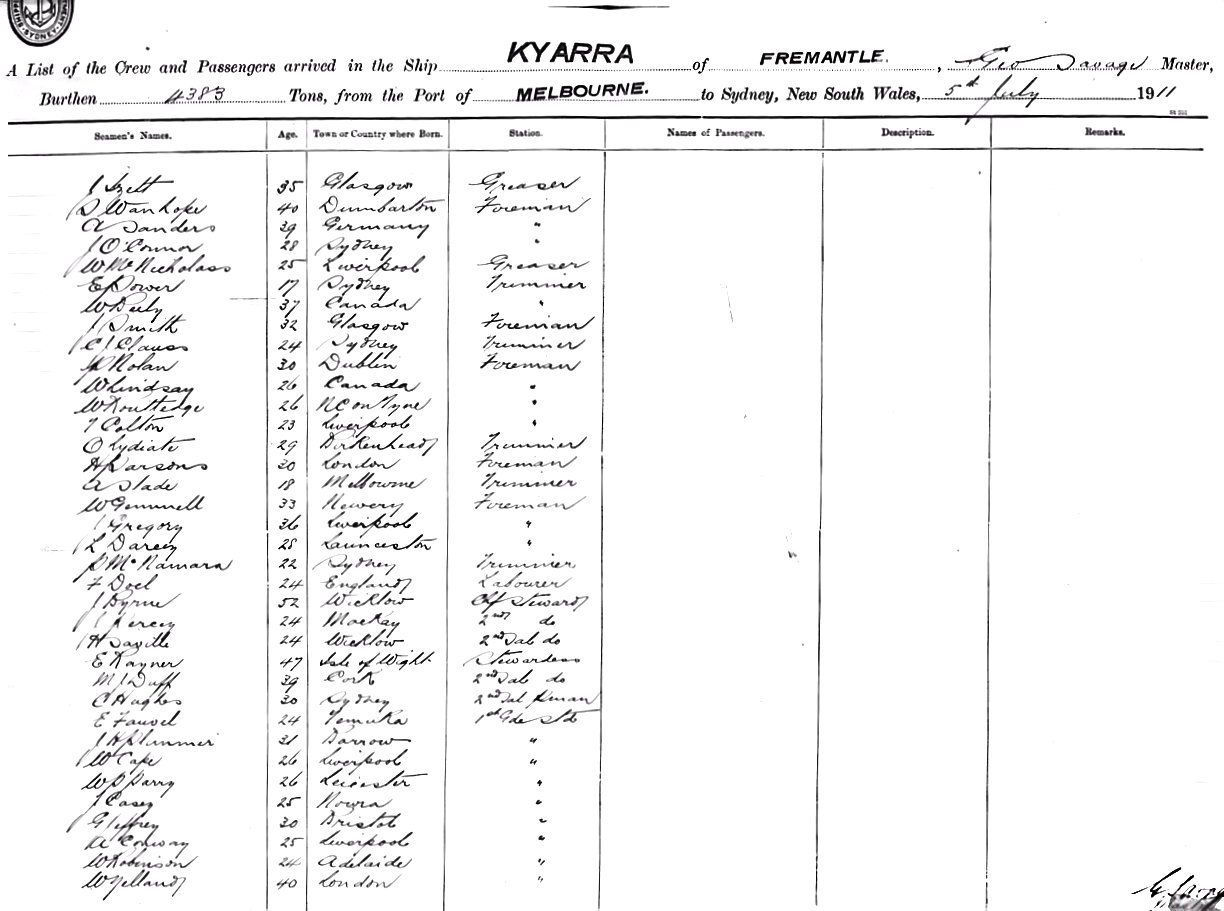 A List of the Crew and Passengers arrived in the Ship KYARRA of FREMANTLE., Geo Savage Master,
Burthen 4383 Tons, from the Port of MELBOURNE. to Sydney, New South Wales, 5th July 1911
Seamen's Names. Age. Town or Country where Born. Station. Names of Passengers. Description. Remarks.
J 35 Glasgow Greaser
S Wanhope 40 Dumbarton Foreman
A Sanders 39 Germany "
J O'Connor 28 Sydney "
W McNicholass 25 Liverpool Greaser
E Power 17 Sydney Trimmer
W 37 Canada "
J Smith 32 Glasgow Foreman
C J Clauss 24 Sydney Trimmer
P Nolan 30 Dublin Foreman
W Lindsay 26 Canada "
W Routledge 26 N C on Tyne "
T Colton 23 Liverpool "
O Lydiate 29 Birkenhead Trimmer
H Parsons 30 London Foreman
A Slade 18 Melbourne Trimmer
W Gemmell 33 Newery Foreman
J Gregory 36 Liverpool "
L Darcy 28 Launceston "
P McNamara 22 Sydney Trimmer
F Doel 24 England Labourer
J Byrne 52 Wicklow Chf Steward
J Percey 24 Mackay 2nd do
H Saville 24 Wicklow 2nd Sal do
E Rayner 47 Isle of Wight Stewardess
M J Duff 39 Cork 2nd Sal do
C Hughes 30 Sydney 2nd Sal
E Fauvel 24 Temuka 1st Gde Std
J H Plummer 31 Barrow "
W Cape 26 Liverpool "
W P Parry 26 Leicester "
J Casey 25 Nowra "
G Jeffrey 30 Bristol "
A Conway 25 Liverpool "
W Robinson 24 Adelaide "
W Yelland 40 London "